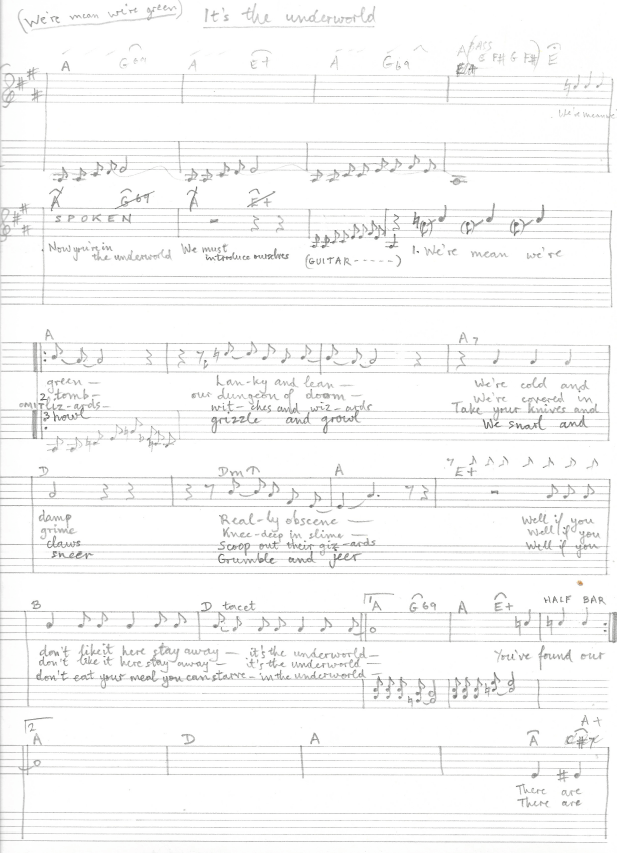 (We're mean we're green)
It's the underworld
A G♭9 A E+ A G♭9 A E
We're mean we're
A G♭9 A E+
SPOKEN
Now you're in We must 1. We're mean we're
the underworld introduce ourselves (GUITAR - - - - -)
A A7
green — Lan-ky and lean — We're cold and
2. tomb — our dungeon of doom — We're covered in
OMIT liz-ards — wit-ches and wiz-ards Take your knives and
3 howl grizzle and growl We snarl and
D Dm↑ A E+
damp Real-ly obscene — Well if you
grime Knee-deep in slime — Well if you
claws Scoop out their giz-ards Well if you
sneer Grumble and jeer
B D tacet 1 A G♭9 A E+ HALF BAR
don't like it here stay away — it's the underworld — You've found our
don't like it here stay away — it's the underworld —
don't eat your meal you can starve — in the underworld —
2 A+
A D A A C#7
There are
There are